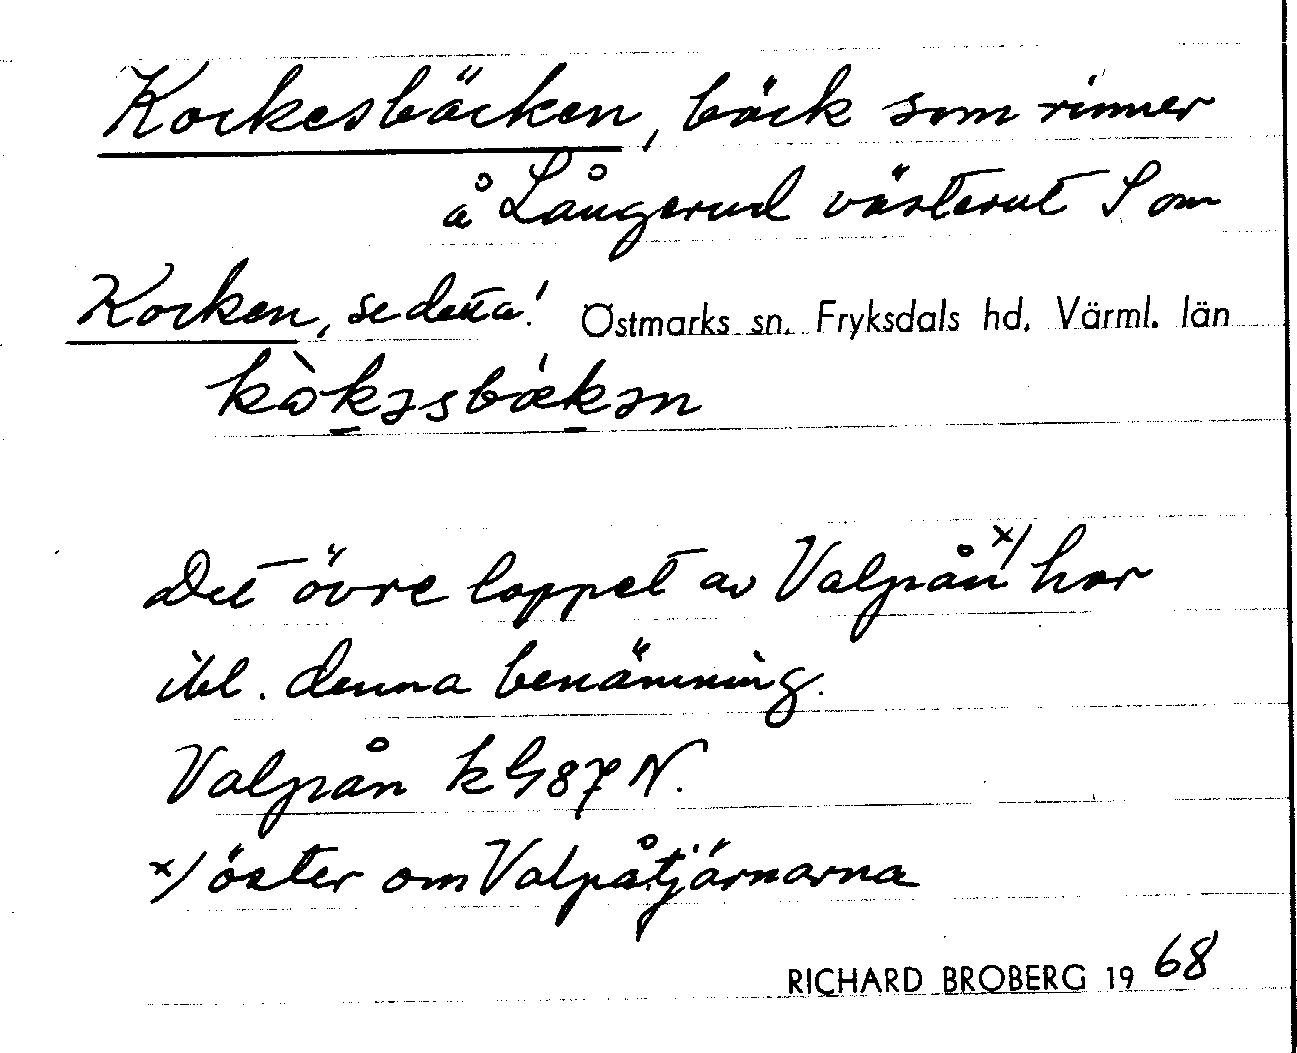 Kockesbäcken, bäck som rinner
å Långerud västerut S om
Kocken, se detta! Östmarks sn. Fryksdals hd. Värml. län
kò̵kəsbækən
Det övre loppet av Valpån x/ har
ibl. denna benämning.
Valpån k G87 N.
x/ öster om Valpåtjärnarna
RICHARD BROBERG 19 68